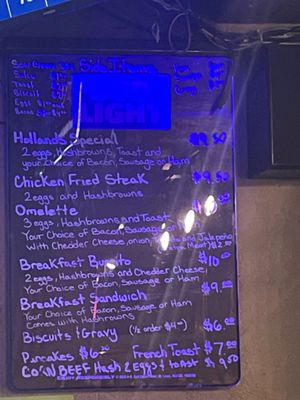 Side Items
Salsa
Toast
Biscuit
Eggs
Bacon
Ham
Sausage
Gravy
LIGHT
Hollands Special $9.50
2 eggs, Hashbrowns, Toast and
your choice of Bacon, Sausage or Ham
Chicken Fried Steak $9.50
2 eggs and Hashbrowns
Omelette
3 eggs, Hashbrowns and Toast
Your Choice of Bacon, Sausage or
with Chedder Cheese, onion, and Jalapeño
Meat $2.50
Breakfast Burrito $10.00
2 eggs, Hashbrowns and Chedder Cheese,
Your Choice of Bacon, Sausage or Ham
Breakfast Sandwich $9.00
Your Choice of Bacon, Sausage or Ham
Comes with Hashbrowns
Biscuits & Gravy (½ order $4.00) $6.00
Pancakes $6.50 French Toast $7.00
CORN BEEF Hash 2 Eggs & toast $9.50